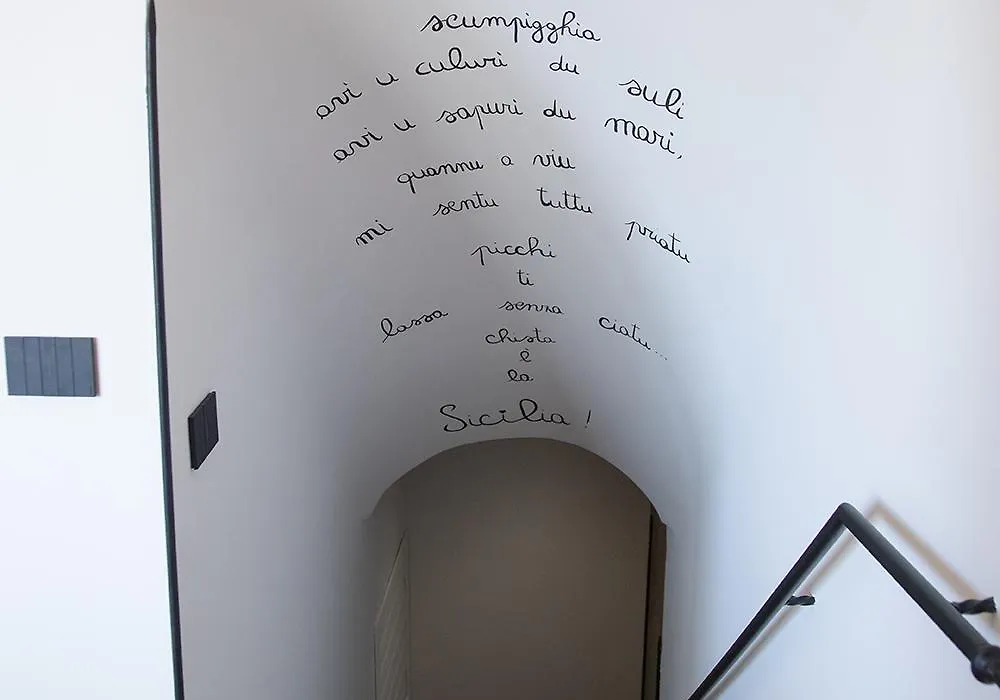 scumpigghia
avi u culuri du suli
avi u sapuri du mari,
quannu a viu
mi sentu tuttu priatu
picchi
ti
lassa senza ciatu...
chista
è
la
Sicilia!